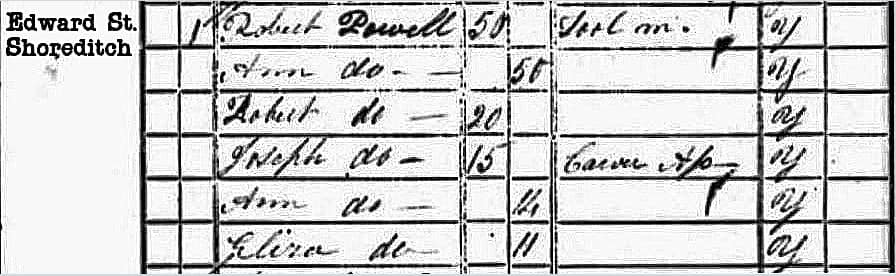 Edward St.
Shoreditch
1 Robert Powell 50 Tool m. Y
Ann do 50 Y
Robert do 20 Y
Joseph do 15 Carver Ap Y
Ann do 14 Y
Eliza do 11 Y